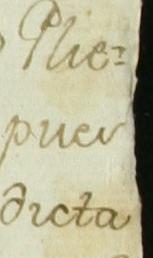 Phe=
puer
dicta